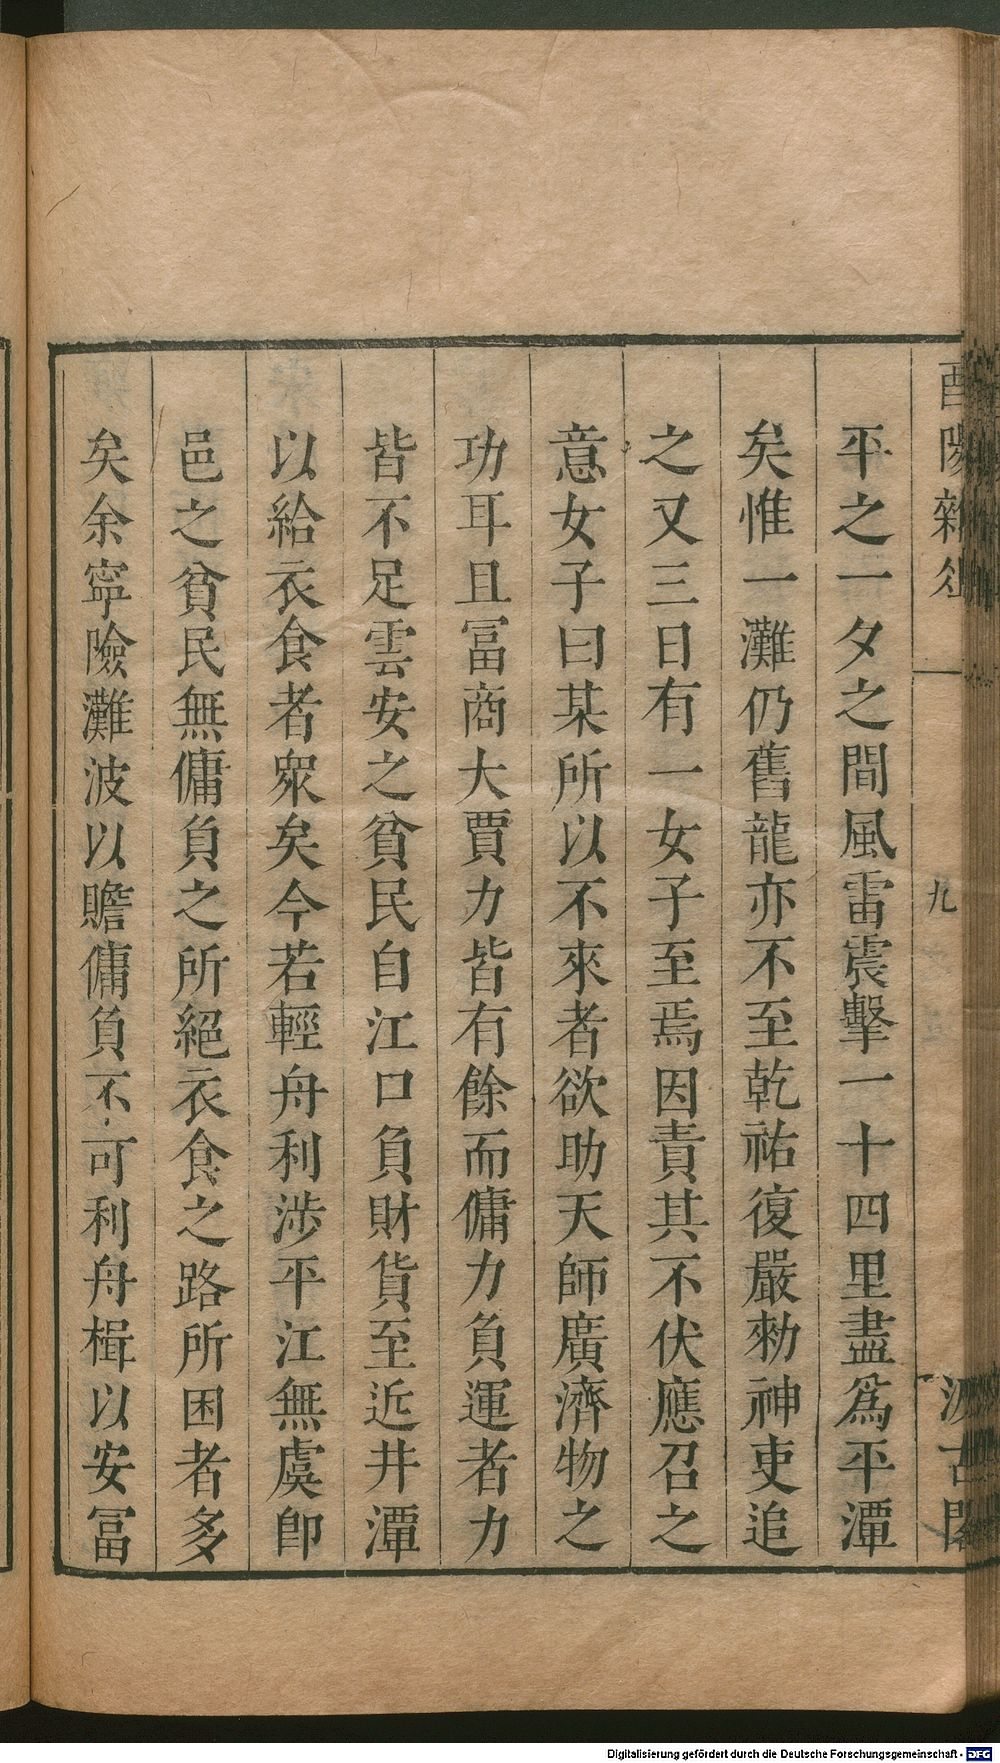 酉陽雜俎
九
汲古閣
平之一夕之間風雷震擊一十四里盡爲平潭
矣惟一灘仍舊龍亦不至乾祐復嚴勑神吏追
之又三日有一女子至焉因責其不伏應召之
意女子曰某所以不來者欲助天師廣濟物之
功耳且冨商大賈力皆有餘而傭力負運者力
皆不足雲安之貧民自江口負財貨至近井潭
以給衣食者衆矣今若輕舟利涉平江無虞卽
邑之貧民無傭負之所絕衣食之路所困者多
矣余寧險灘波以贍傭負不可利舟楫以安冨
Digitalisierung gefördert durch die Deutsche Forschungsgemeinschaft - DFG